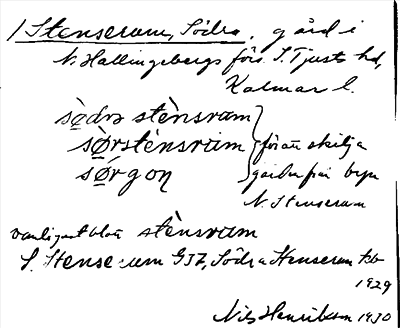 / Stenserum, Södra, gård i
N. Hallingebergs förs. S. Tjusts hd,
Kalmar l.
sø̀drə stènsrum
sø̀rstènsrum } för att skilja
sø̀rgoṇ } gården från byn
N. Stenserum
vanligast blott stènsrum
S. Stenserum G37, Södra Stenserum
1929
Nils Henrikson 1930